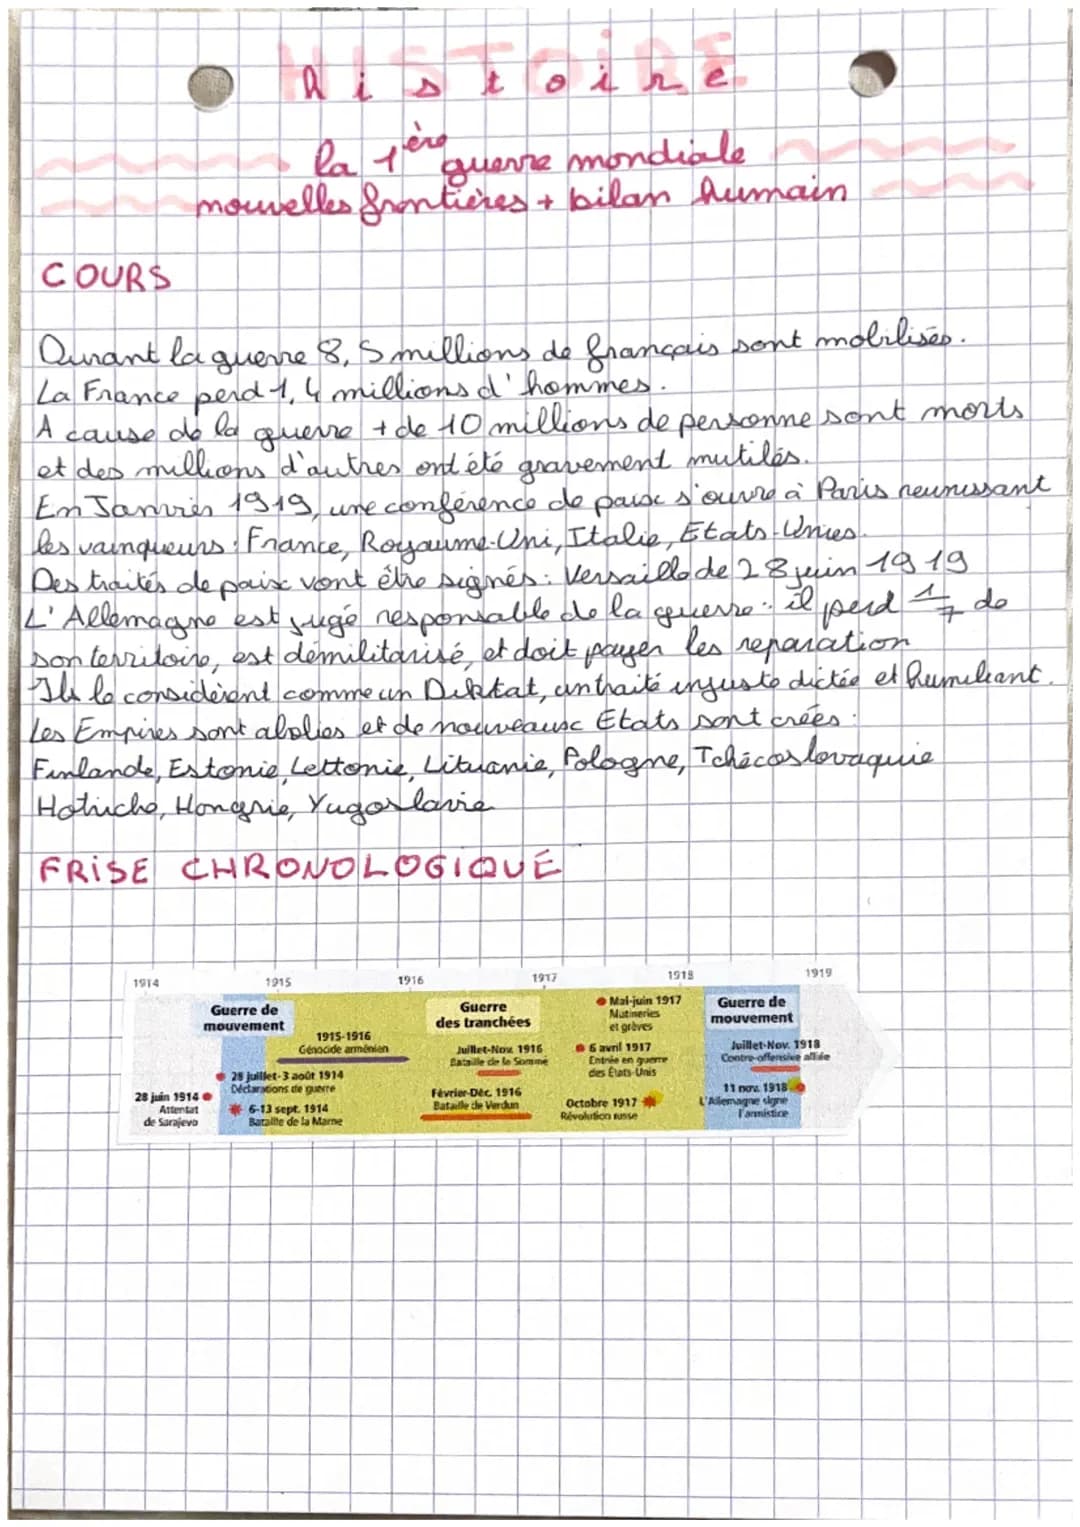 HISTOIRE
histoire
la 1ère guerre mondiale
nouvelles frontières + bilan humain
COURS
Durant la guerre 8,5 millions de français sont mobilisés.
La France perd 1,4 millions d'hommes.
A cause de la guerre + de 10 millions de personne sont morts
et des millions d'autres ont été gravement mutilés.
En Janvier 1919, une conférence de paix s'ouvre à Paris reunissant
les vainqueurs : France, Royaume-Uni, Italie, Etats-Unies.
Des traités de paix vont être signés : Versaille de 28 juin 1919
L'Allemagne est jugé responsable de la guerre : il perd 1/7 de
son territoire, est démilitarisé, et doit payer les reparation
Ils le considèrent comme un Diktat, un traité injuste dictée et humiliant.
Les Empires sont abolies et de nouveaux Etats sont crées :
Finlande, Estonie, Lettonie, Lituanie, Pologne, Tchécoslovaquie
Hotriche, Hongrie, Yugoslavie
FRISE CHRONOLOGIQUE
1914 1915 1916 1917 1918 1919
Guerre de
mouvement
Guerre
des tranchées
Guerre de
mouvement
1915-1916
Génocide arménien
28 juillet-3 août 1914
Déclarations de guerre
28 juin 1914
Attentat
de Sarajevo
6-13 sept. 1914
Bataille de la Marne
Juillet-Nov. 1916
Bataille de la Somme
Février-Déc. 1916
Bataille de Verdun
Mai-juin 1917
Mutineries
et grèves
6 avril 1917
Entrée en guerre
des États-Unis
Octobre 1917
Révolution russe
Juillet-Nov. 1918
Contre-offensive alliée
11 nov. 1918
L'Allemagne signe
l'armistice